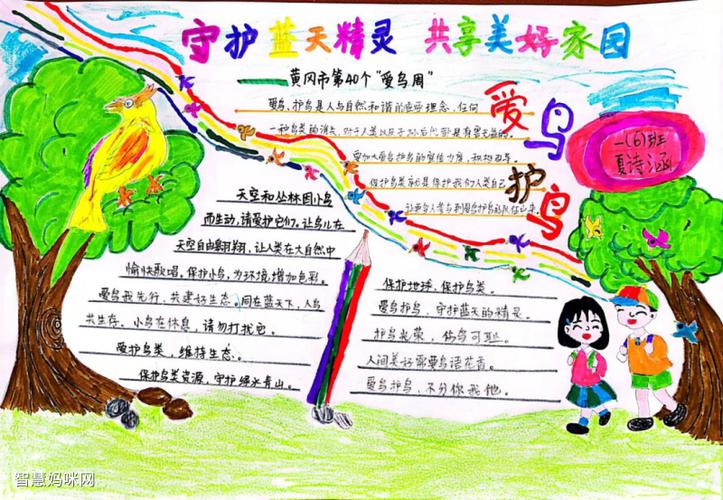 守护蓝天精灵 共享美好家园
黄冈市第40个"爱鸟周"
爱鸟护鸟
一(6)班
夏诗涵
爱鸟、护鸟是人与自然和谐的重要理念，任何
一种鸟类的消失，对于人类以及子孙后代都是有害无益的。
保护鸟类就是保护我们人类自己
天空和丛林因小鸟
而生动，请爱护它们。让鸟儿在
天空自由翱翔，让人类在大自然中
愉快歌唱。保护小鸟，为环境增加色彩。
爱鸟我先行，共建好生态。同在蓝天下，人鸟
共生存。小鸟在休息，请勿打扰它。
爱护鸟类，维持生态。
保护鸟类资源，守护绿水青山。
保护地球，保护鸟类。
爱鸟护鸟，守护蓝天的精灵。
护鸟光荣，伤鸟可耻。
人间美好需要鸟语花香。
爱鸟护鸟，不分你我他。
智慧妈咪网